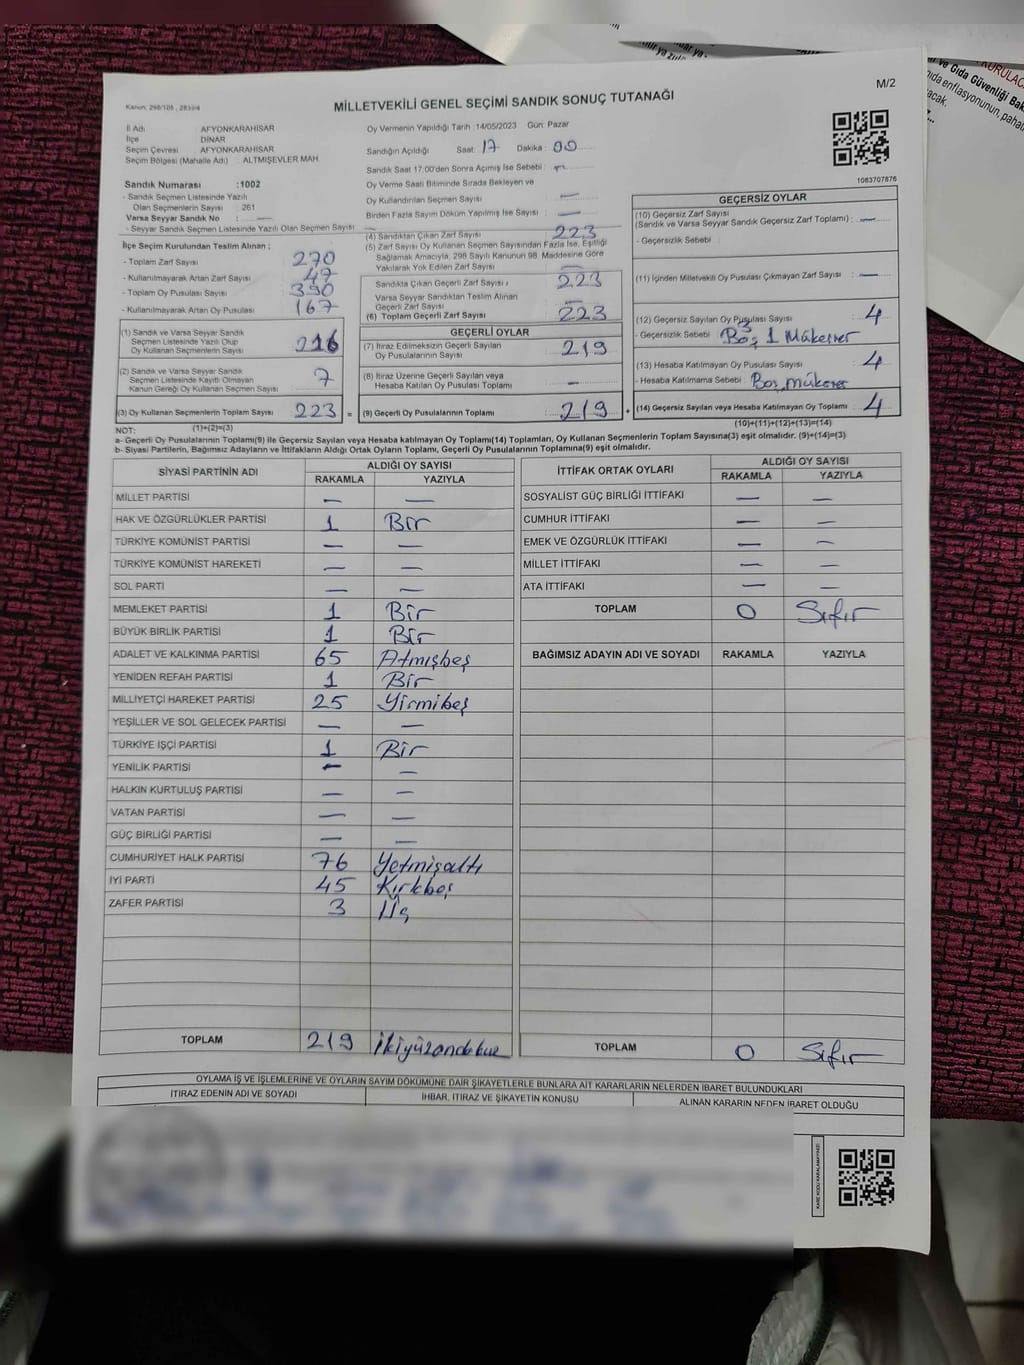 M/2
Kanun: 298/105 , 2839/4
MİLLETVEKİLİ GENEL SEÇİMİ SANDIK SONUÇ TUTANAĞI
İl Adı AFYONKARAHİSAR
İlçe DİNAR
Seçim Çevresi AFYONKARAHİSAR
Seçim Bölgesi (Mahalle Adı) ALTMIŞEVLER MAH.
Sandık Numarası :1002
- Sandık Seçmen Listesinde Yazılı
Olan Seçmenlerin Sayısı 261
Varsa Seyyar Sandık No : —
- Seyyar Sandık Seçmen Listesinde Yazılı Olan Seçmen Sayısı: —
İlçe Seçim Kurulundan Teslim Alınan ;
- Toplam Zarf Sayısı 270
- Kullanılmayarak Artan Zarf Sayısı 47
- Toplam Oy Pusulası Sayısı
- Kullanılmayarak Artan Oy Pusulası 167
(1) Sandık ve Varsa Seyyar Sandık
Seçmen Listesinde Yazılı Olup
Oy Kullanan Seçmenlerin Sayısı 216
(2) Sandık ve Varsa Seyyar Sandık
Seçmen Listesinde Kayıtlı Olmayan
Kanun Gereği Oy Kullanan Seçmen Sayısı 7
(3) Oy Kullanan Seçmenlerin Toplam Sayısı 223 =
(1)+(2)=(3)
Oy Vermenin Yapıldığı Tarih :14/05/2023 Gün: Pazar
Sandığın Açıldığı Saat: 17 Dakika : 00
Sandık Saat 17:00'den Sonra Açılmış İse Sebebi : —
Oy Verme Saati Bitiminde Sırada Bekleyen ve
Oy Kullandırılan Seçmen Sayısı : —
Birden Fazla Sayım Döküm Yapılmış İse Sayısı : —
(4) Sandıktan Çıkan Zarf Sayısı 223
(5) Zarf Sayısı Oy Kullanan Seçmen Sayısından Fazla İse, Eşitliği
Sağlamak Amacıyla, 298 Sayılı Kanunun 98. Maddesine Göre
Yakılarak Yok Edilen Zarf Sayısı —
Sandıkta Çıkan Geçerli Zarf Sayısı 223
Varsa Seyyar Sandıktan Teslim Alınan
Geçerli Zarf Sayısı —
(6) Toplam Geçerli Zarf Sayısı 223
GEÇERLİ OYLAR
(7) İtiraz Edilmeksizin Geçerli Sayılan
Oy Pusulalarının Sayısı 219
(8) İtiraz Üzerine Geçerli Sayılan veya
Hesaba Katılan Oy Pusulası Toplamı —
(9) Geçerli Oy Pusulalarının Toplamı 219 +
1083707876
GEÇERSİZ OYLAR
(10) Geçersiz Zarf Sayısı
(Sandık ve Varsa Seyyar Sandık Geçersiz Zarf Toplamı) : —
- Geçersizlik Sebebi
(11) İçinden Milletvekili Oy Pusulası Çıkmayan Zarf Sayısı : —
(12) Geçersiz Sayılan Oy Pusulası Sayısı 4
- Geçersizlik Sebebi : 3 Boş 1 Mükerrer
(13) Hesaba Katılmayan Oy Pusulası Sayısı 4
- Hesaba Katılmama Sebebi : Boş, Mükerrer
(14) Geçersiz Sayılan veya Hesaba Katılmayan Oy Toplamı 4
(10)+(11)+(12)+(13)=(14)
NOT:
a- Geçerli Oy Pusulalarının Toplamı(9) ile Geçersiz Sayılan veya Hesaba katılmayan Oy Toplamı(14) Toplamları, Oy Kullanan Seçmenlerin Toplam Sayısına(3) eşit olmalıdır. (9)+(14)=(3)
b- Siyasi Partilerin, Bağımsız Adayların ve İttifakların Aldığı Ortak Oyların Toplamı, Geçerli Oy Pusulalarının Toplamına(9) eşit olmalıdır.
SİYASİ PARTİNİN ADI ALDIĞI OY SAYISI
RAKAMLA YAZIYLA
MİLLET PARTİSİ — —
HAK VE ÖZGÜRLÜKLER PARTİSİ 1 Bir
TÜRKİYE KOMÜNİST PARTİSİ — —
TÜRKİYE KOMÜNİST HAREKETİ — —
SOL PARTİ — —
MEMLEKET PARTİSİ 1 Bir
BÜYÜK BİRLİK PARTİSİ 1 Bir
ADALET VE KALKINMA PARTİSİ 65 Atmışbeş
YENİDEN REFAH PARTİSİ 1 Bir
MİLLİYETÇİ HAREKET PARTİSİ 25 Yirmibeş
YEŞİLLER VE SOL GELECEK PARTİSİ — —
TÜRKİYE İŞÇİ PARTİSİ 1 Bir
YENİLİK PARTİSİ — —
HALKIN KURTULUŞ PARTİSİ — —
VATAN PARTİSİ — —
GÜÇ BİRLİĞİ PARTİSİ — —
CUMHURİYET HALK PARTİSİ 76 Yetmişaltı
İYİ PARTİ 45 Kırkbeş
ZAFER PARTİSİ 3 Üç
TOPLAM 219 İkiyüzondokuz
İTTİFAK ORTAK OYLARI ALDIĞI OY SAYISI
RAKAMLA YAZIYLA
SOSYALİST GÜÇ BİRLİĞİ İTTİFAKI — —
CUMHUR İTTİFAKI — —
EMEK VE ÖZGÜRLÜK İTTİFAKI — —
MİLLET İTTİFAKI — —
ATA İTTİFAKI — —
TOPLAM 0 Sıfır
BAĞIMSIZ ADAYIN ADI VE SOYADI RAKAMLA YAZIYLA
TOPLAM 0 Sıfır
OYLAMA İŞ VE İŞLEMLERİNE VE OYLARIN SAYIM DÖKÜMÜNE DAİR ŞİKAYETLERLE BUNLARA AİT KARARLARIN NELERDEN İBARET BULUNDUKLARI
İTİRAZ EDENİN ADI VE SOYADI İHBAR, İTİRAZ VE ŞİKAYETİN KONUSU ALINAN KARARIN NEDEN İBARET OLDUĞU
KARE KODU KARALAMAYINIZ!